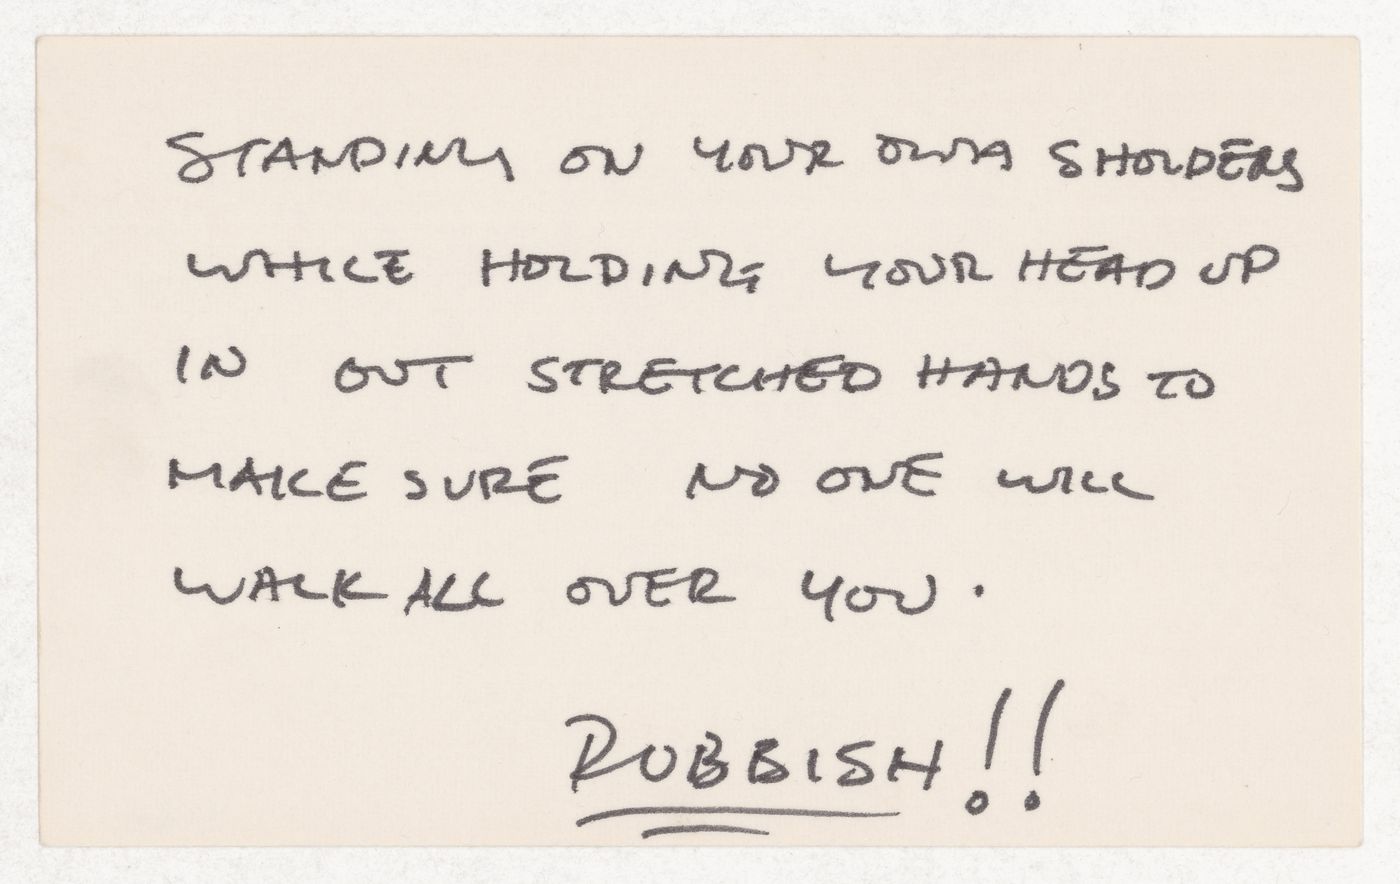 STANDING ON YOUR OWN SHOLDERS
WHILE HOLDING YOUR HEAD UP
IN OUT STRETCHED HANDS TO
MAKE SURE NO ONE WILL
WALK ALL OVER YOU.
RUBBISH!!